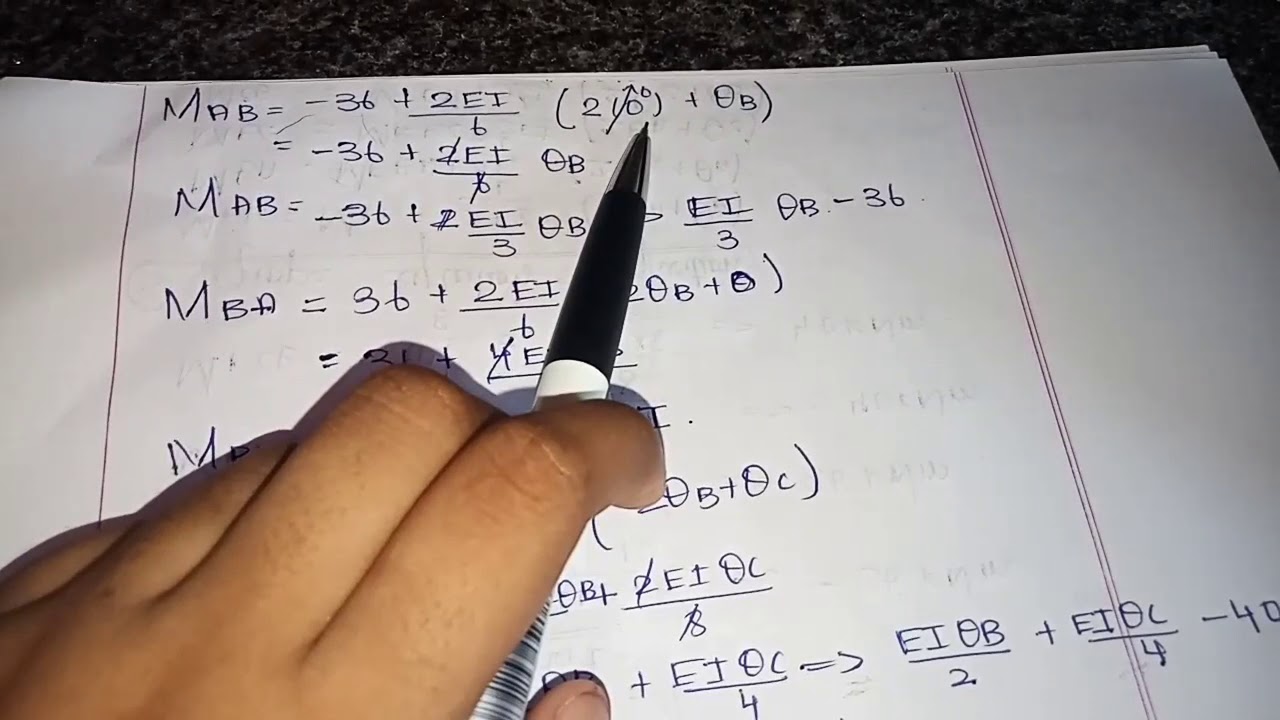 MAB = -36 + 2EI/6 (2(0) + θB)
= -36 + 2EI/6 θB
MAB = -36 + EI/3 θB EI/3 θB - 36
MBA = 36 + 2EI/6 2θB + 0)
= +
M
( 2θB + θC)
θB + 2EIθC/8
+ EIθC/4 => EIθB/2 + EIθC/4 - 40